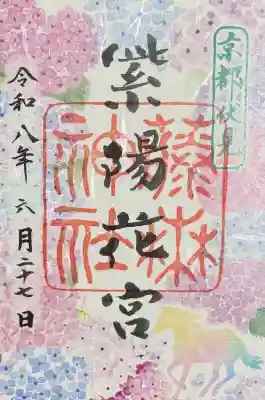 京都伏見
紫陽花宮
藤森
神社
令和八年 六月二十七日